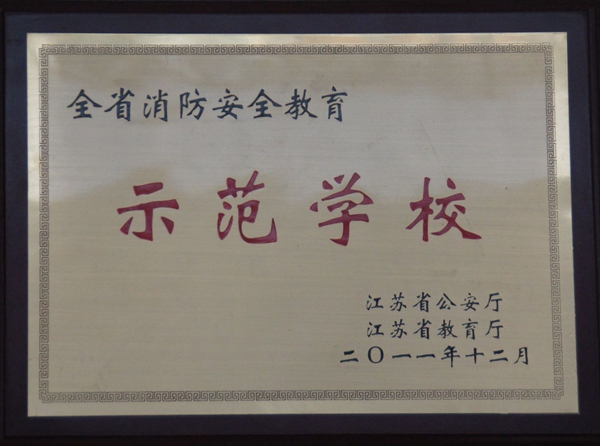 全省消防安全教育
示范学校
江苏省公安厅
江苏省教育厅
二〇一一年十二月